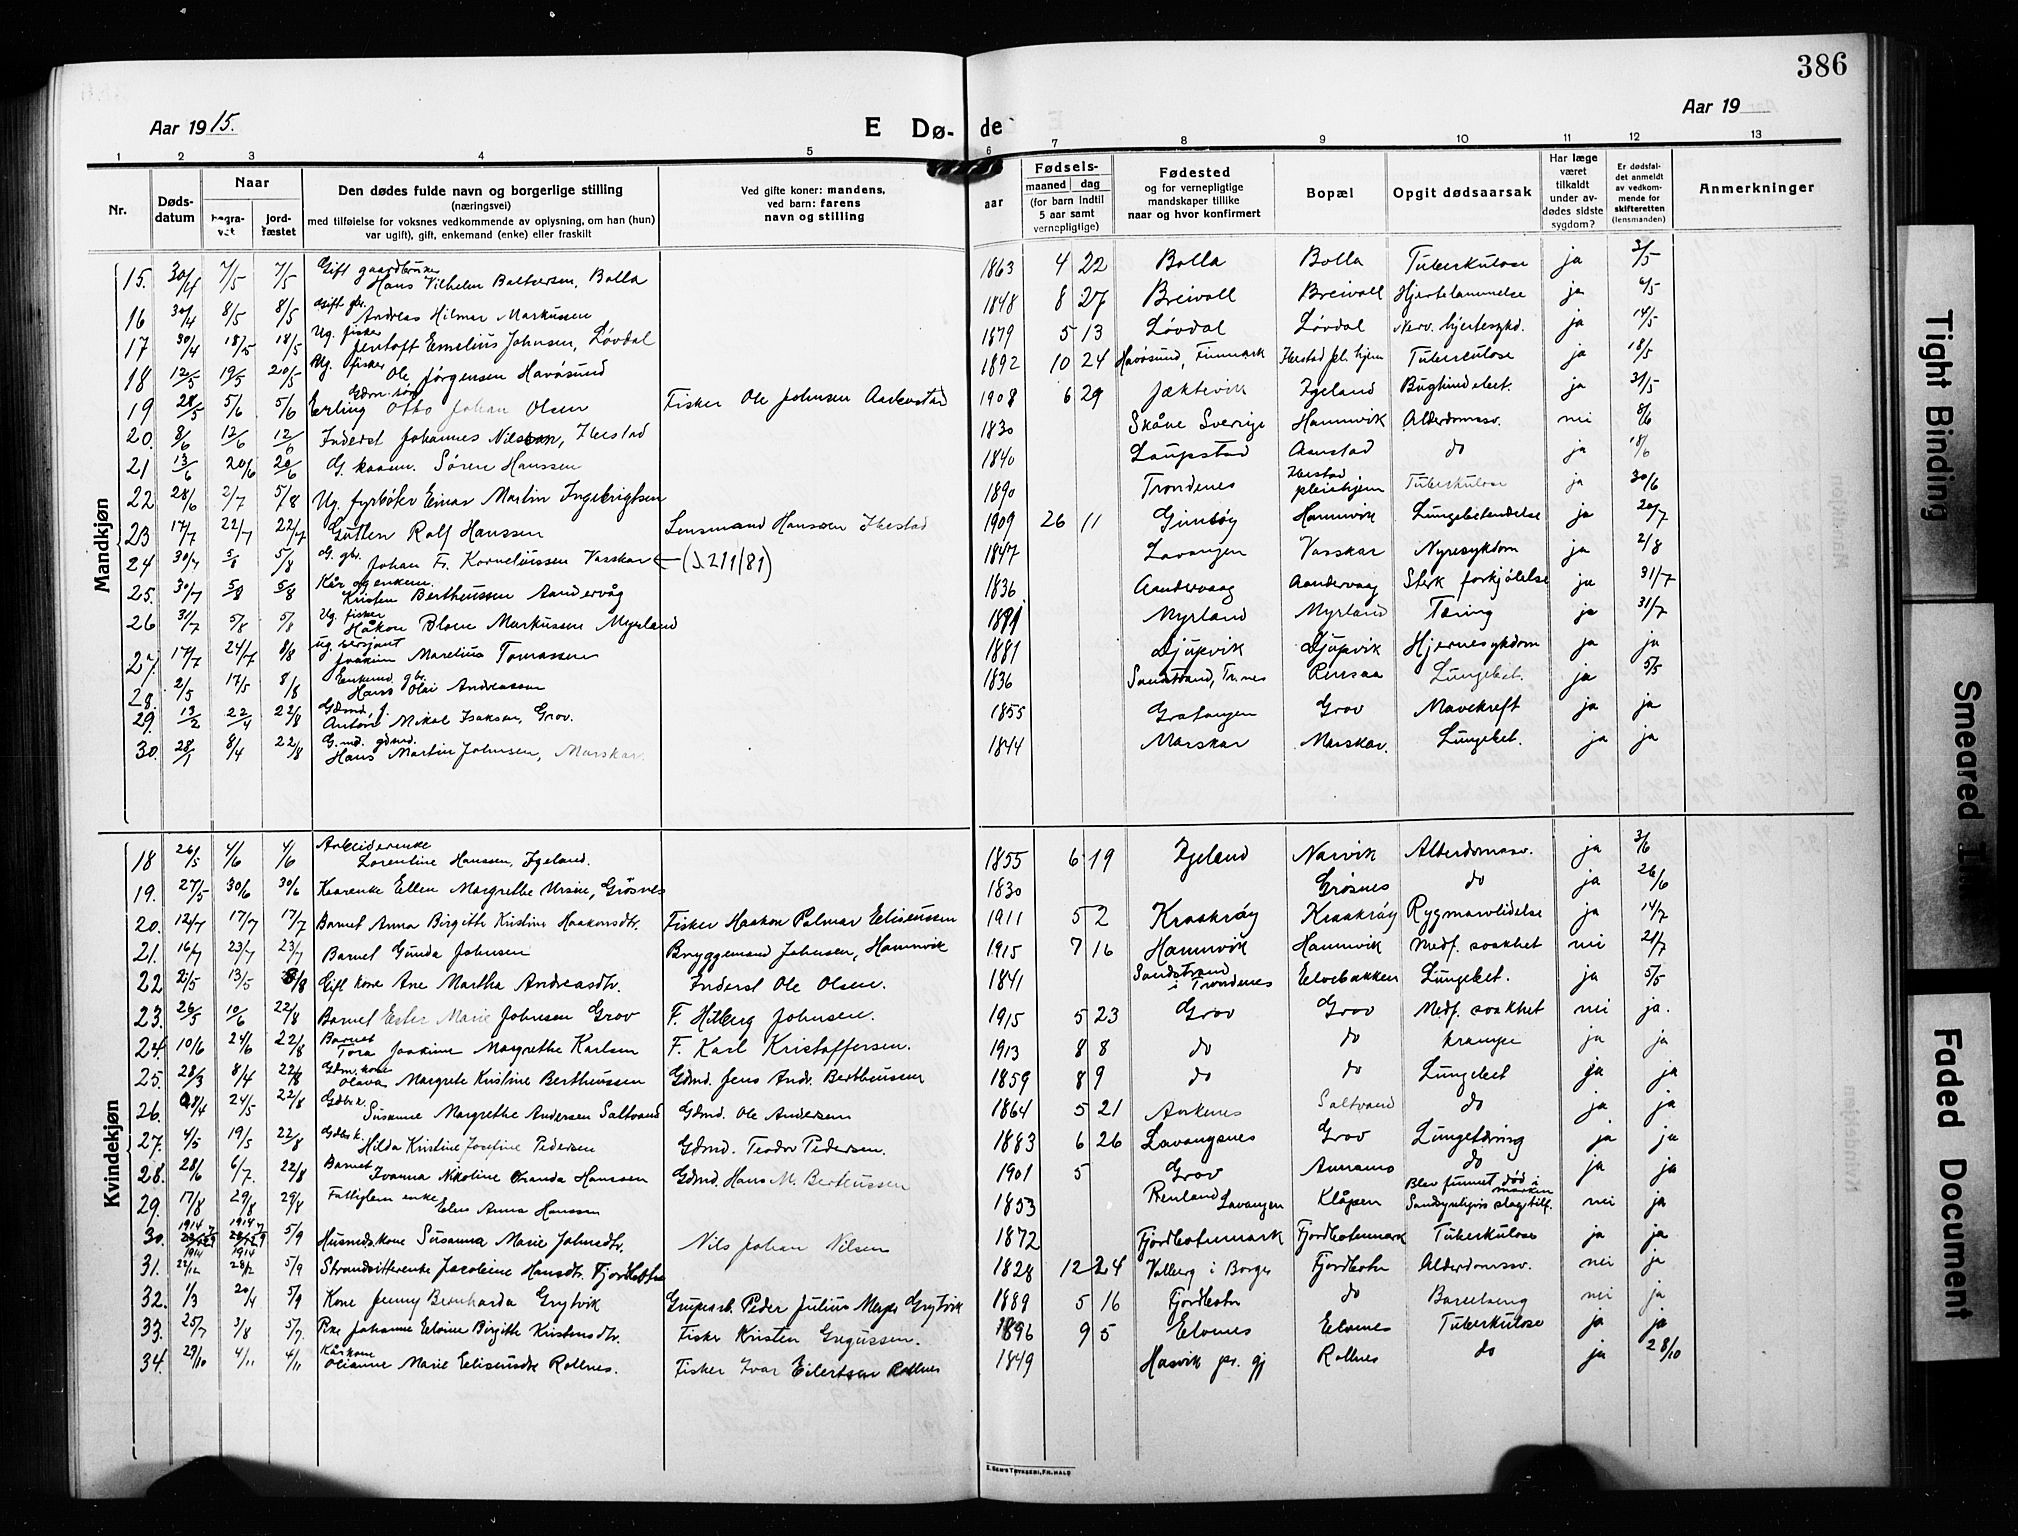 386
Aar 1915.
E Dø-
de
Aar 19
1 2 3 4 5 6 7 8 9 10 11 12 13
Nr.
Døds-
datum
Naar
begra-
vet
jord-
fæstet
Den dødes fulde navn og borgerlige stilling
(næringsvei)
med tilføielse for voksnes vedkommende av oplysning, om han (hun)
var ugift), gift, enkemand (enke) eller fraskilt
Ved gifte koner: mandens,
ved barn: farens
navn og stilling
aar
Fødsels-
maaned dag
(for barn indtil
5 aar samt
vernepligtige)
Fødested
og for vernepligtige
mandskaper tillike
naar og hvor konfirmert
Bopæl
Opgit dødsaarsak
Har læge
været
tilkaldt
under av-
dødes sidste
sygdom?
Er dødsfal-
det anmeldt
av vedkom-
mende for
skifteretten
(lensmanden)
Anmerkninger
Mandkjøn
15. 30/4 7/5 7/5 Gift gaardbruker Hans Vilhelm Baltsersen, Bolla 1863 4 22 Bolla Bolla Tuberkulose ja 3/5
16 30/4 8/5 8/5 Gift gbr. Andreas Hilmar Markussen 1848 8 27 Breivoll Breivoll Hjertelammelse ja 6/5
17 30/4 18/5 18/5 Ug. fisker Jentoft Emelius Johnsen, Løvdal 1879 5 13 Løvdal Løvdal Nerv. hjertesykd. ja 14/5
18 12/5 19/5 20/5 Ug. fisker Ole Jørgensen Havøsund 1892 10 24 Havøsund, Finmark Ibestad pl. hjem Tuberculose ja 18/5
19 28/5 5/6 5/6 Gdm. søn Erling Otto Johan Olsen Fisker Ole Johnsen 1908 6 29 Jektevik Igeland Bughindebet. ja 31/5
20. 8/6 12/6 12/6 Inderst Johannes Nilsson, Ibestad 1830 Skåne Sverige Hamnvik Alderdomssv. nei 8/6
21 13/6 20/6 20/6 G. kaarm. Søren Hanssen 1840 Laupstad Aanstad do ja 18/6
22 28/6 2/7 5/8 Ug. fyrbøter Einar Martin Ingebrigtsen 1890 Trondenes Ibestad pleiehjem Tuberkulose ja 30/6
23 17/7 22/7 22/7 Gutten Rolf Hanssen Lensmand Hanssen Ibestad 1909 26 11 Gimsøy Hamnvik Lungebetendelse ja 20/7
24 30/7 5/8 5/8 G. gbr. Johan Fr. Korneliussen Vasskar ←(J.211/81) 1847 Lavangen Vasskar Nyresykdom ja 2/8
25. 30/7 5/8 5/8 Kår og enkem. Kristen Bertheussen Aandervåg 1836 Aandervaag Aandervaag Sterk forkjølelse ja 31/7
26 31/7 5/8 5/8 Ug. fisker Håkon Bloen Markussen Myrland Myrland Myrland Tæring ja 31/7
27. 17/7 24/7 8/8 ug. sersjant Joakim Marelius Tomassen 1881 Djupvik Djupvik Hjernesykdom ja ja
28. 2/5 17/5 8/8 Enkemd. gbr. Hans Olai Andreassen 1836 Sandstrand, Tr.nes Rensaa Lungebet. ja 5/5
29. 13/2 22/4 22/8 Gdmd. g. Anton Mikal Isaksen, Grov. 1855 Gratangen Grov Mavekreft ja ja
30. 28/1 8/4 22/8 G. md. gdmd. Hans Martin Johnsen, Marskar 1844 Marskar Marskar. Lungebet. ja ja
Kvindekjøn
18 26/5 4/6 4/6 Arbeiderenke Lorentine Hanssen, Igeland. 1855 6 19 Igeland Narvik Alderdomssv. ja 3/6
19. 27/5 30/6 30/6 Kaarenke Ellen Margrethe Ursin, Grøsnes 1830 Grøsnes do ja 26/6
20. 12/7 17/7 17/7 Barnet Anna Birgith Kristine Haakonsdtr. Fisker Haakon Palmar Eliseussen 1911 5 2 Kraakrøy Kraakrøy Rygmarvlidelse ja 14/7
21. 16/7 23/7 23/7 Barnet Gunda Johnsen Bryggemand Johnsen, Hamnvik 1915 7 16 Hamnvik Hamnvik Medf. svakhet nei 21/7
22 2/5 13/5 8/8 Gift kone Ane Martha Andreasdtr. Inderst Ole Olsen. 1841 Sandstrand i Trondenes Elvebakken Lungebet. ja 5/5
23. 26/5 10/6 22/8 Barnet Ester Marie Johnsen Grov F. Hilberg Johnsen. 1915 5 23 Grov Grov Medf. svakhet nei ja.
24. 10/6 24/6 22/8 Barnet Tora Joakime Margrethe Karlsen F. Karl Kristoffersen. 1913 8 8 do do kramper ja ja
25. 28/3 8/4 22/8 Gdm. kone Olava Margrete Kristine Bertheussen Gdmd. Jens Andr. Bertheussen 1859 8 9 do do Lungebet ja ja
26. 28/4 24/5 22/8 Gdbr. k. Susanne Margrethe Andersen Saltvand Gdmd. Ole Andersen 1864 5 21 Aarkenes Saltvand do ja ja
27. 4/5 19/5 22/8 Gdbr. k. Hilda Kristine Josefine Pedersen Gdmd. Teodor Pedersen. 1883 6 26 Lavangsnes Grov Lungetæring ja ja
28. 28/6 6/7. 22/8 Barnet Ivanna Nikoline Oranda Hanssen Gdmd. Hans M. Berteussen 1901 5 Grov Annamo do ja ja
29. 17/8 29/8 29/8 Fattiglem enke Elen Anna Hanssen 1853 Renland Lavangen Klåpen Blev funnet død i marken Sandsynligvis slagtilf. nei ja
30. 1914 1914 5/9 Husmdskone Susanna Marie Johnsdtr. Nils Johan Nilsen 1872 Fjordbotnmark Fjordbotnmark Tuberkulose ja ja
31. 1914 22/12 1914 28/12 5/9 Strandsitterenke Jacobine Hansdtr. Fjordbotn 1828 12 24 Valberg i Borge Fjordbotn Alderdomssv. nei ja
32. 1/3 20/4 5/9 Kone Jenny Bernharda Grytvik Grubearb. Peder Julius Grytvik 1889 5 16 Fjordbotn do Barselseng nei ja
33. 25/7 3/8 5/9 Pike Johanne Elvine Birgith Kristensdtr. Fisker Kristen Gregussen. 1896 9 5 Elvenes Elvenes Tuberkulose ja ja
34. 29/10 4/11 4/11 Kårkone Olianne Marie Eliseusdtr Rollnes. Fisker Ivar Eilertsen Rollnes 1849 Hasvik pr. gj Rollnes do ja 28/10
Tight Binding
Smeared
Faded Document